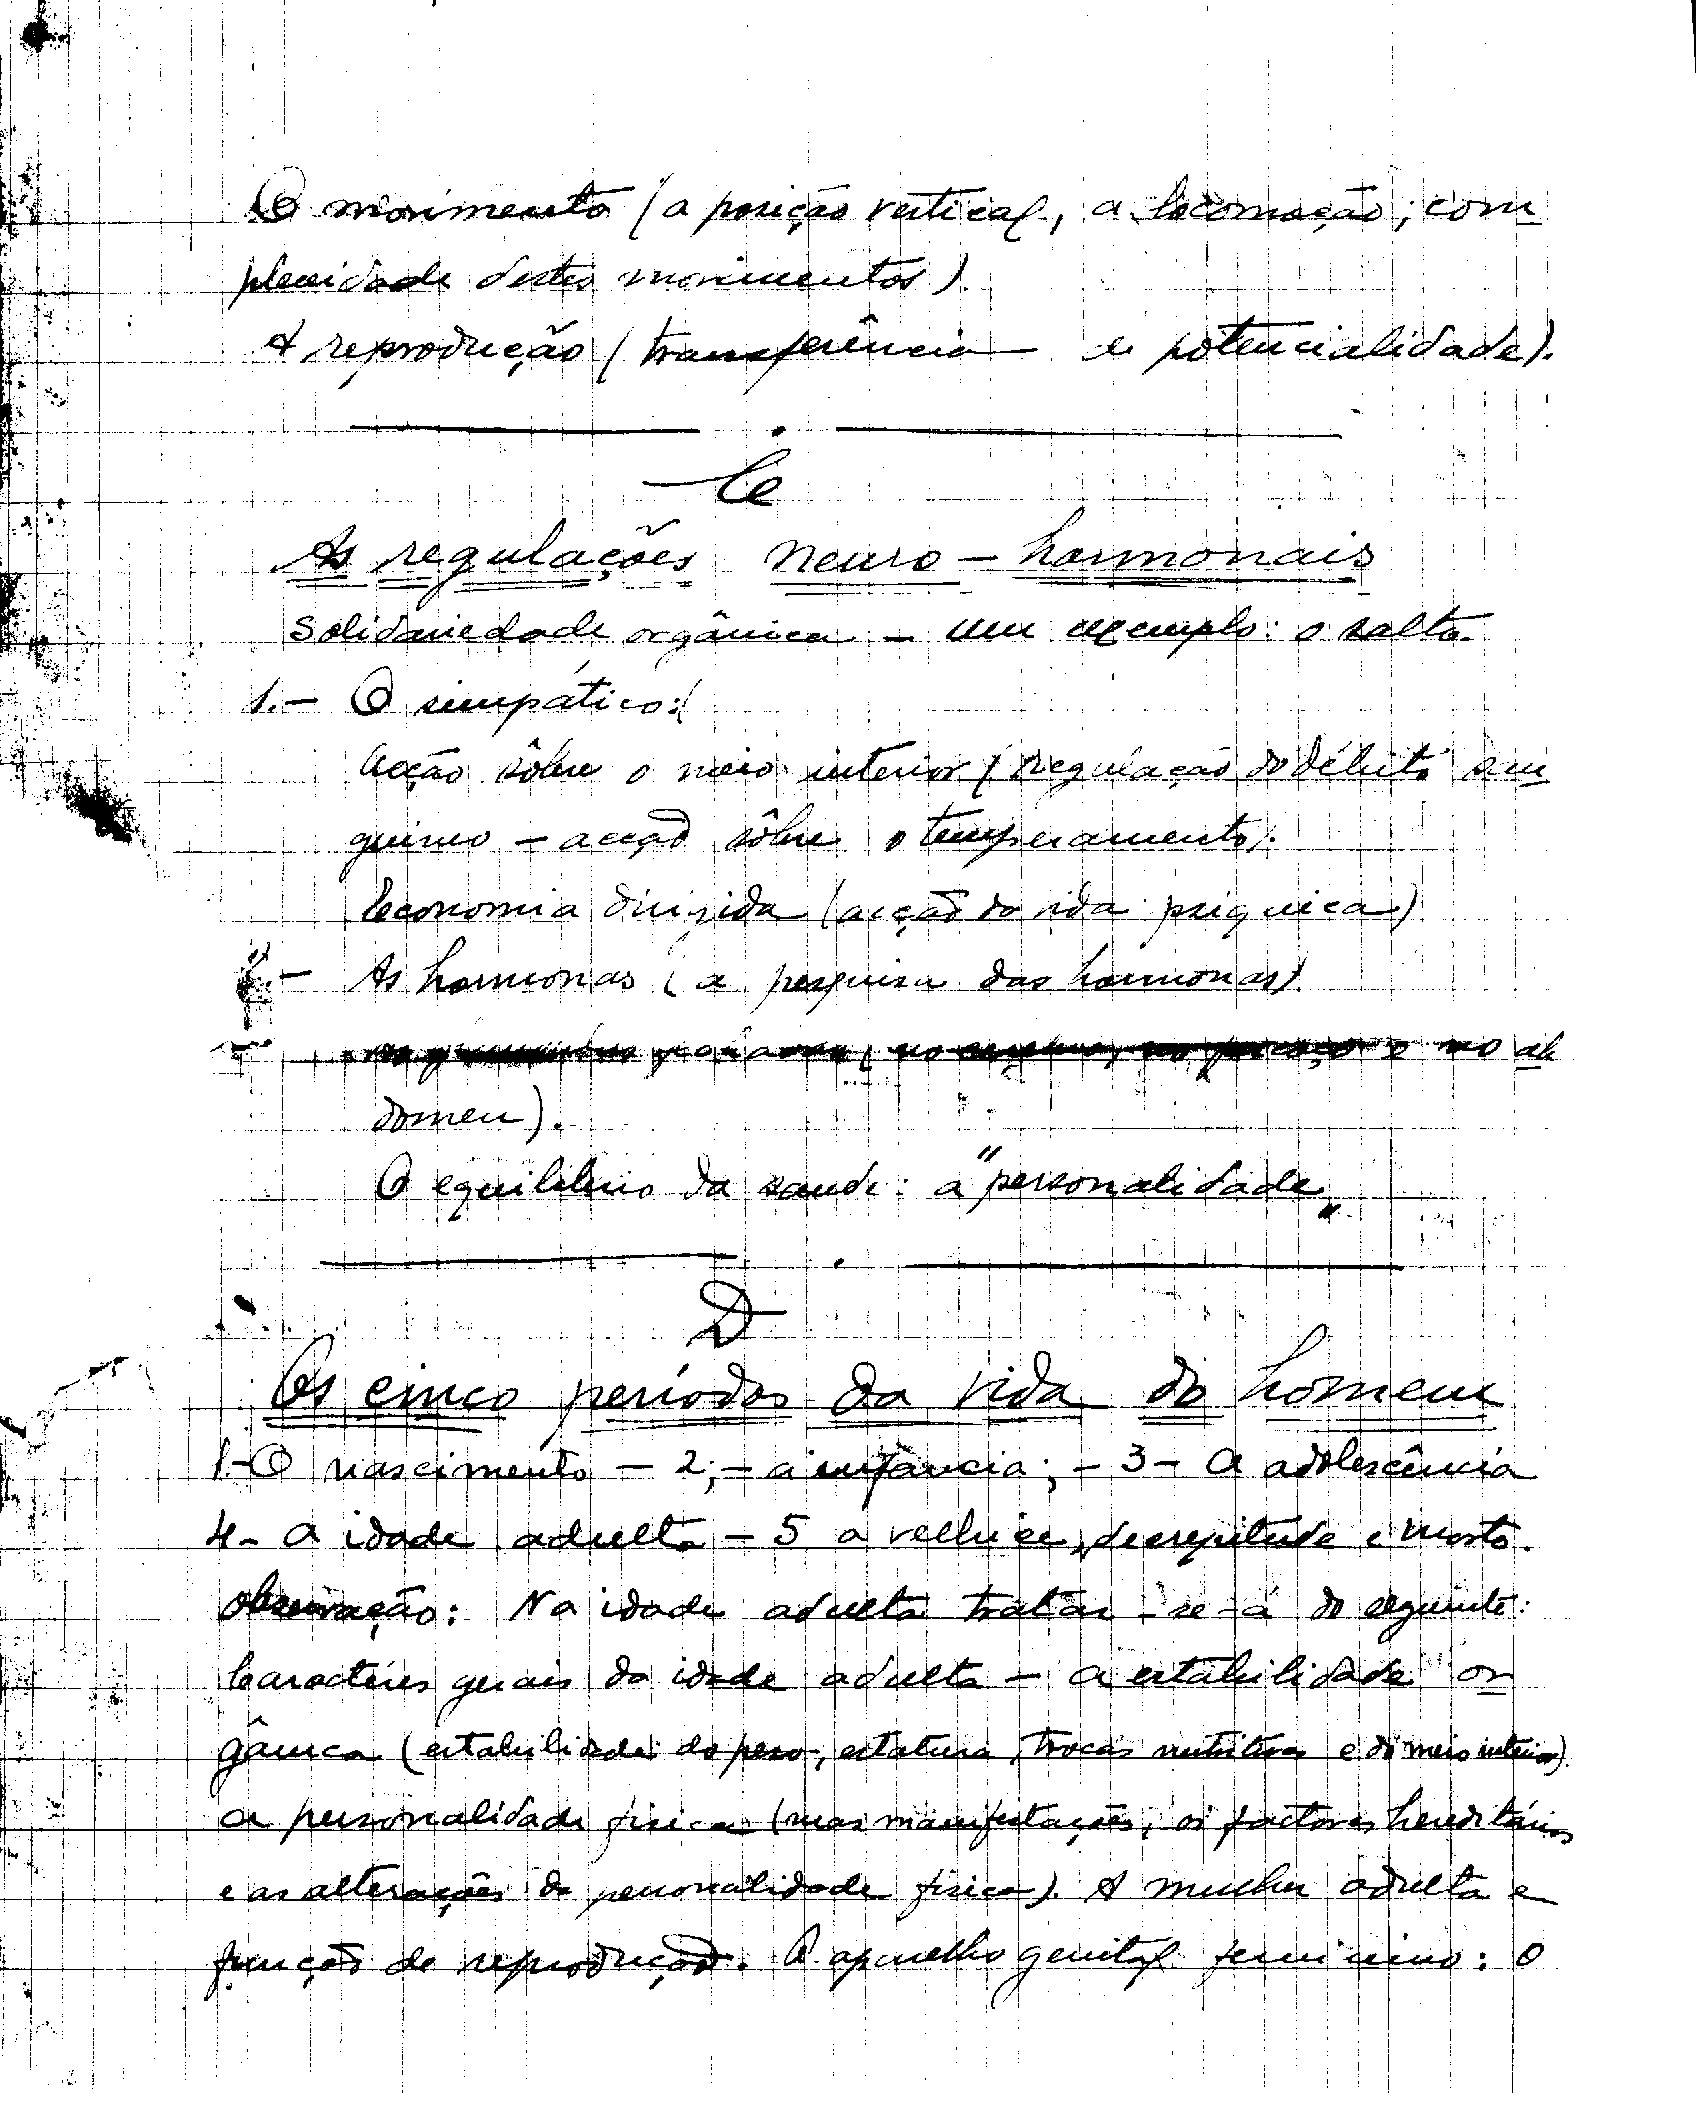 O movimento (a posição vertical, a locomoção; com
plexidade destes movimentos).
A reprodução (transferência e potencialidade).
C
As regulações neuro-hormonais
Solidariedade orgânica - um exemplo: o salto.
1.- O simpático:
Acção sôbre o meio interior (regulação do débito san
guineo - acção sôbre o temperamento).
Economia dirigida (acção da vida psiquica)
- As hormonas (a pesquisa das hormonas).
no ab
domen).
O equilibrio da saude: a "personalidade"
D
Os cinco períodos da vida do homem
1-O nascimento - 2;- a infância; - 3- A adolescência
4- A idade adulta - 5 a velhice, decrepitude e morte.
Observação: Na idade adulta tratar-se-á do seguinte:
Caractéres gerais da idade adulta - a estabilidade or
gânica (estabilidade do peso, estatura, trocas nutritivas e do meio interior).
A personalidade fisica (suas manifestações, os factores hereditários
e as alterações da personalidade fisica). A mulher adulta e
função de reprodução. O aparelho genital feminino: o